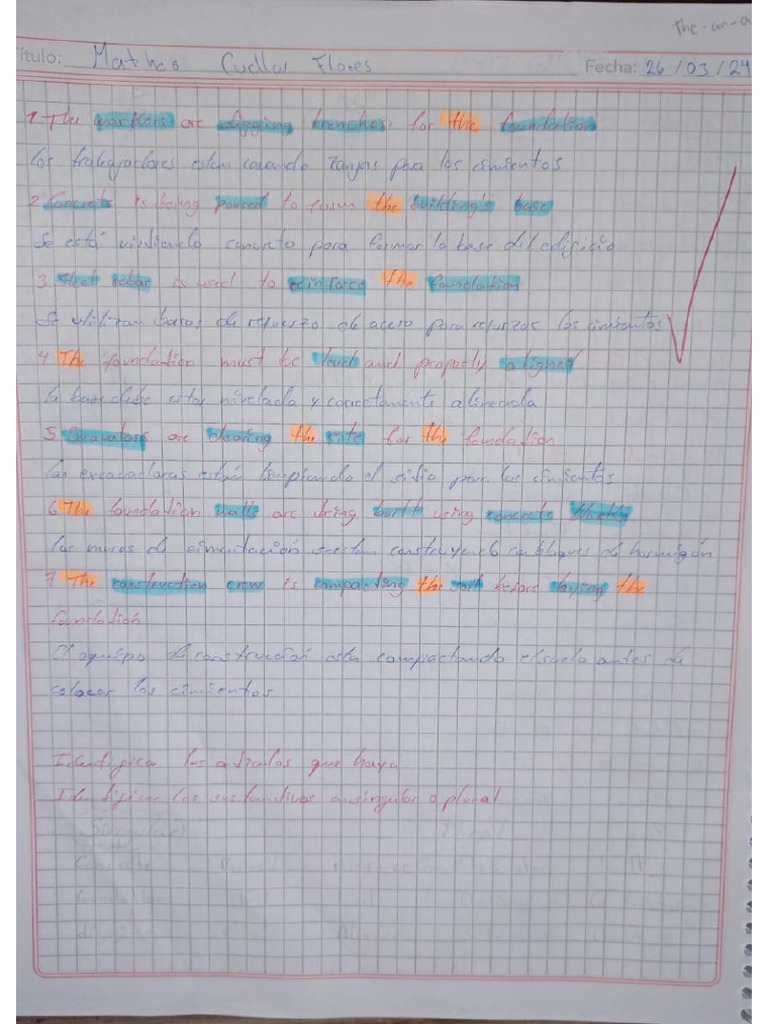 The-an-a
Título: Matheo Cuellar Flores Fecha: 26/03/24
1 The workers are digging trenches for the foundation
los trabajadores estan cavando zanjas para los cimientos
2 Concrete is being poured to form the building's base
Se está vindiendo concreto para formar la base del edificio
3 Steel rebar is used to reinforce the foundation
Se utilizan barras de refuerzo de acero para reforzar los cimientos
4 The foundation must be level and properly aligned
la base debe estar nivelada y correctamente alineada
5 Excavators are clearing the site for the foundation
las excavadoras están limpiando el sitio para los cimientos
6 The foundation walls are being built using concrete blocks
los muros de cimentación se estan construyendo con bloques de hormigón
7 The construction crew is compacting the soil before laying the
foundation
El equipo de construcción esta compactando el suelo antes de
colocar los cimientos
Identificar los articulos que haya
Identificar los sustantivos en singular o plural